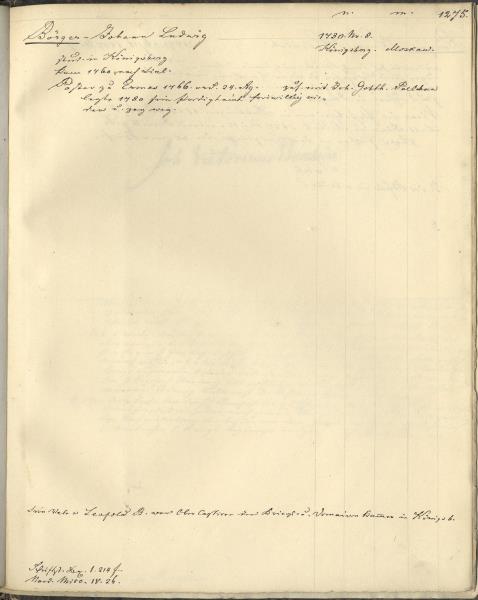 n. m. 1275.
Börger, Johann Ludwig 1730. Nr. 8.
Königsberg. Moskau.
stud. in Königsberg
kam 1760 nach Livl.
Pastor zu Ermes 1766. ord. 24. Aug. zus. mit Joh. Gotth.
legte 1780 sein Predigtamt freiwillig nie-
der u. zog weg.
Sein Vater Leopold B. war Ober Cassirer der Kriegs- u. Domainen Kammer in Königsb.
I. 214 f.
Nord. Misc. IV. 26.